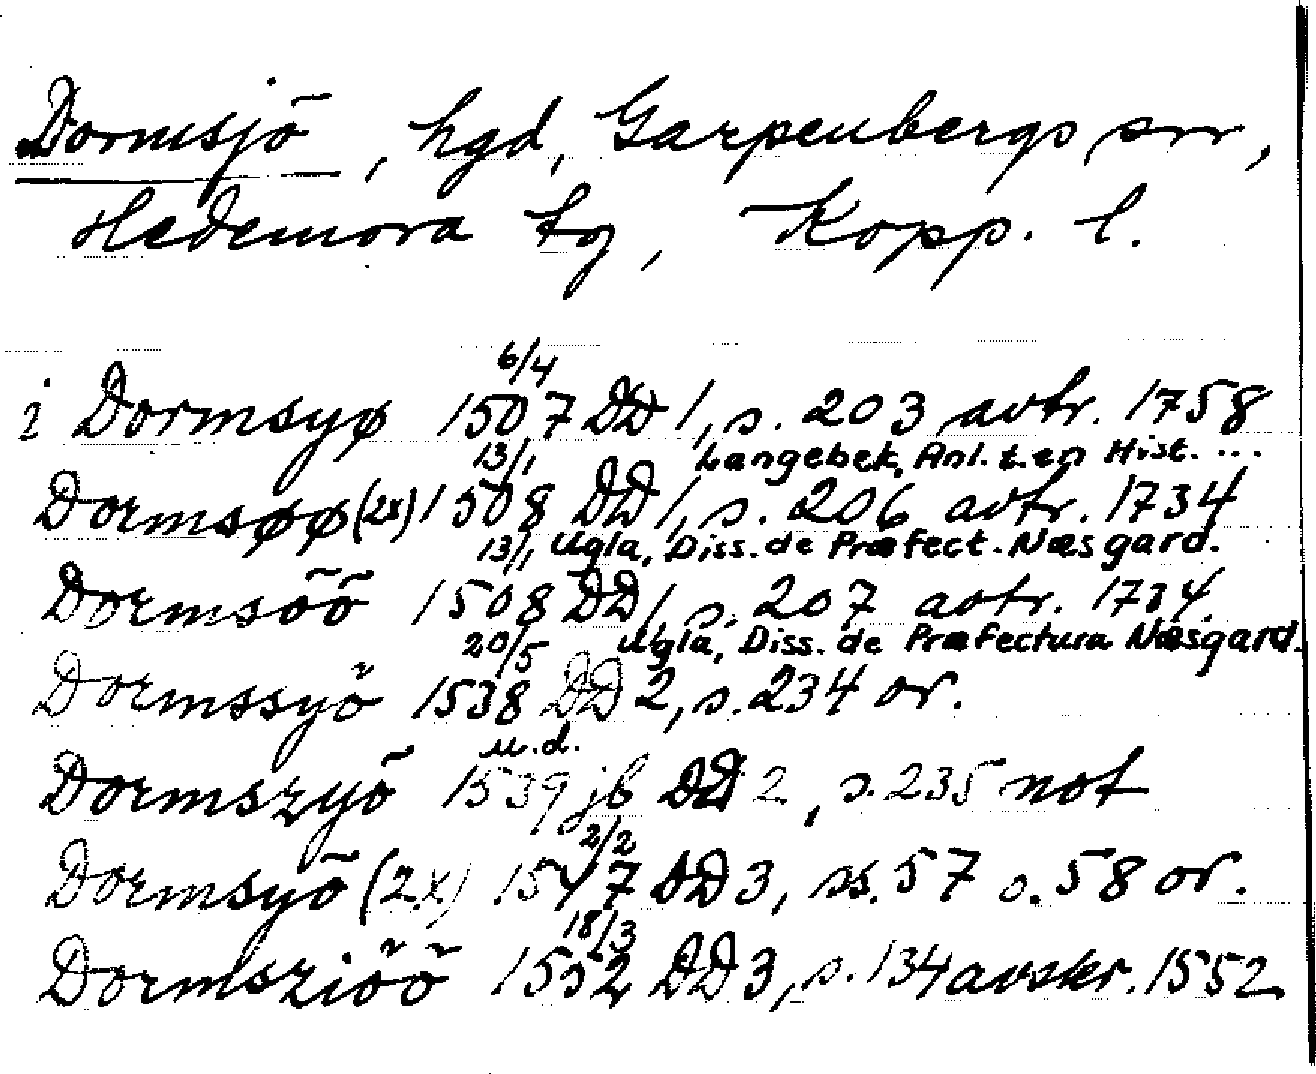 Dormsjö, hgd, Garpenbergs sn,
Hedemora tg, Kopp. l.
6/4
i Dormsyø 1507 DD 1, s. 203 avtr. 1758
13/1 Langebek, Anl. t. en Hist. ...
Dormsøø (2x) 1508 DD 1, s. 206 avtr. 1734
13/1 Ugla, Diss. de Præfect. Næsgard.
Dormsöö 1508 DD 1, s. 207 avtr. 1734
20/5 Ugla, Diss. de Præfectura Næsgard.
Dormssyö 1538 DD 2, s. 234 or.
u.d.
Dormszyö 1539 jb DD 2, s. 235 not
2/2
Dormsyö (2x) 1547 DD 3, ss. 57 o. 58 or.
18/3
Dormsziöö 1552 DD 3, s. 134 avskr. 1552